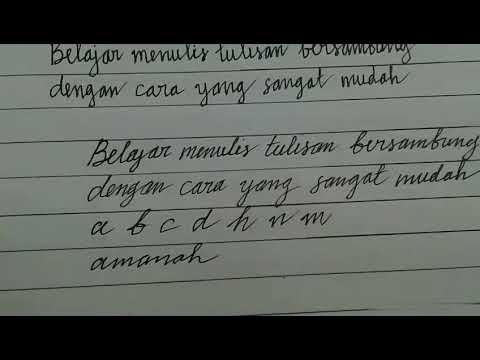 Belajar menulis tulisan bersambung
dengan cara yang sangat mudah
Belajar menulis tulisan bersambung
dengan cara yang sangat mudah
a b c d h n m
amanah